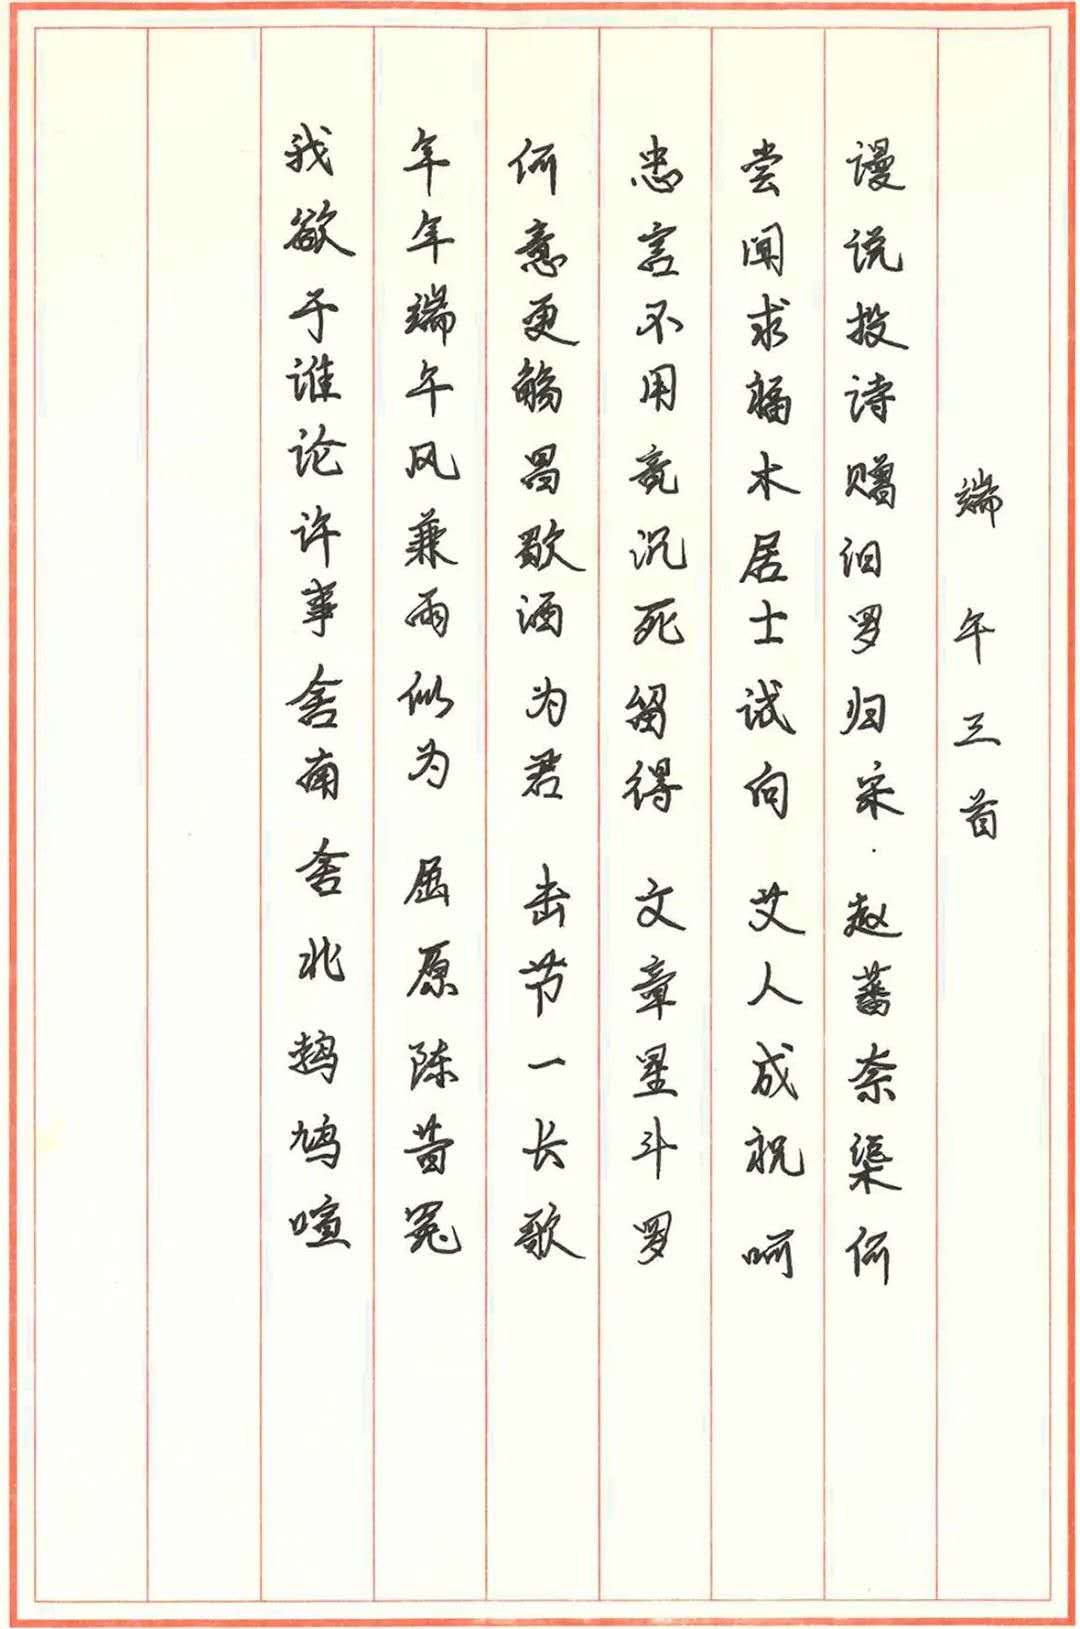 端午三首
谩说投诗赠汨罗归宋·赵蕃奈渠何
尝闻求福木居士试向艾人成祝呵
忠言不用竟沉死留得文章星斗罗
何意更觞昌歜酒为君击节一长歌
年年端午风兼雨似为屈原陈昔冤
我欲于谁论许事舍南舍北鹁鸠喧